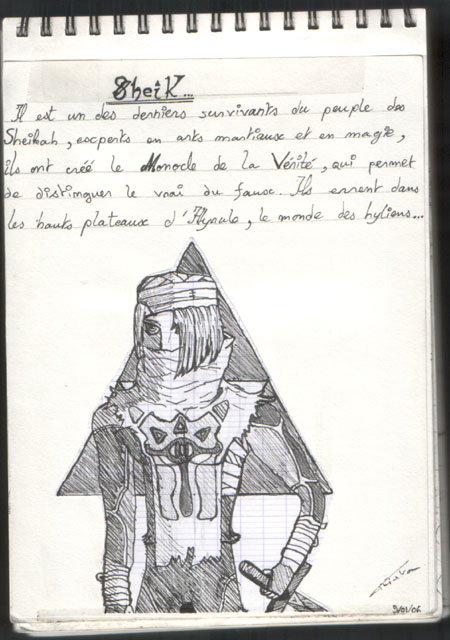 Sheik...
Il est un des derniers survivants du peuple des
Sheikah, experts en arts martiaux et en magie,
ils ont créé le Monocle de la Vérité, qui permet
de distinguer le vrai du faux. Ils errent dans
les hauts plateaux d'Hyrule, le monde des hyliens...
9/01/06